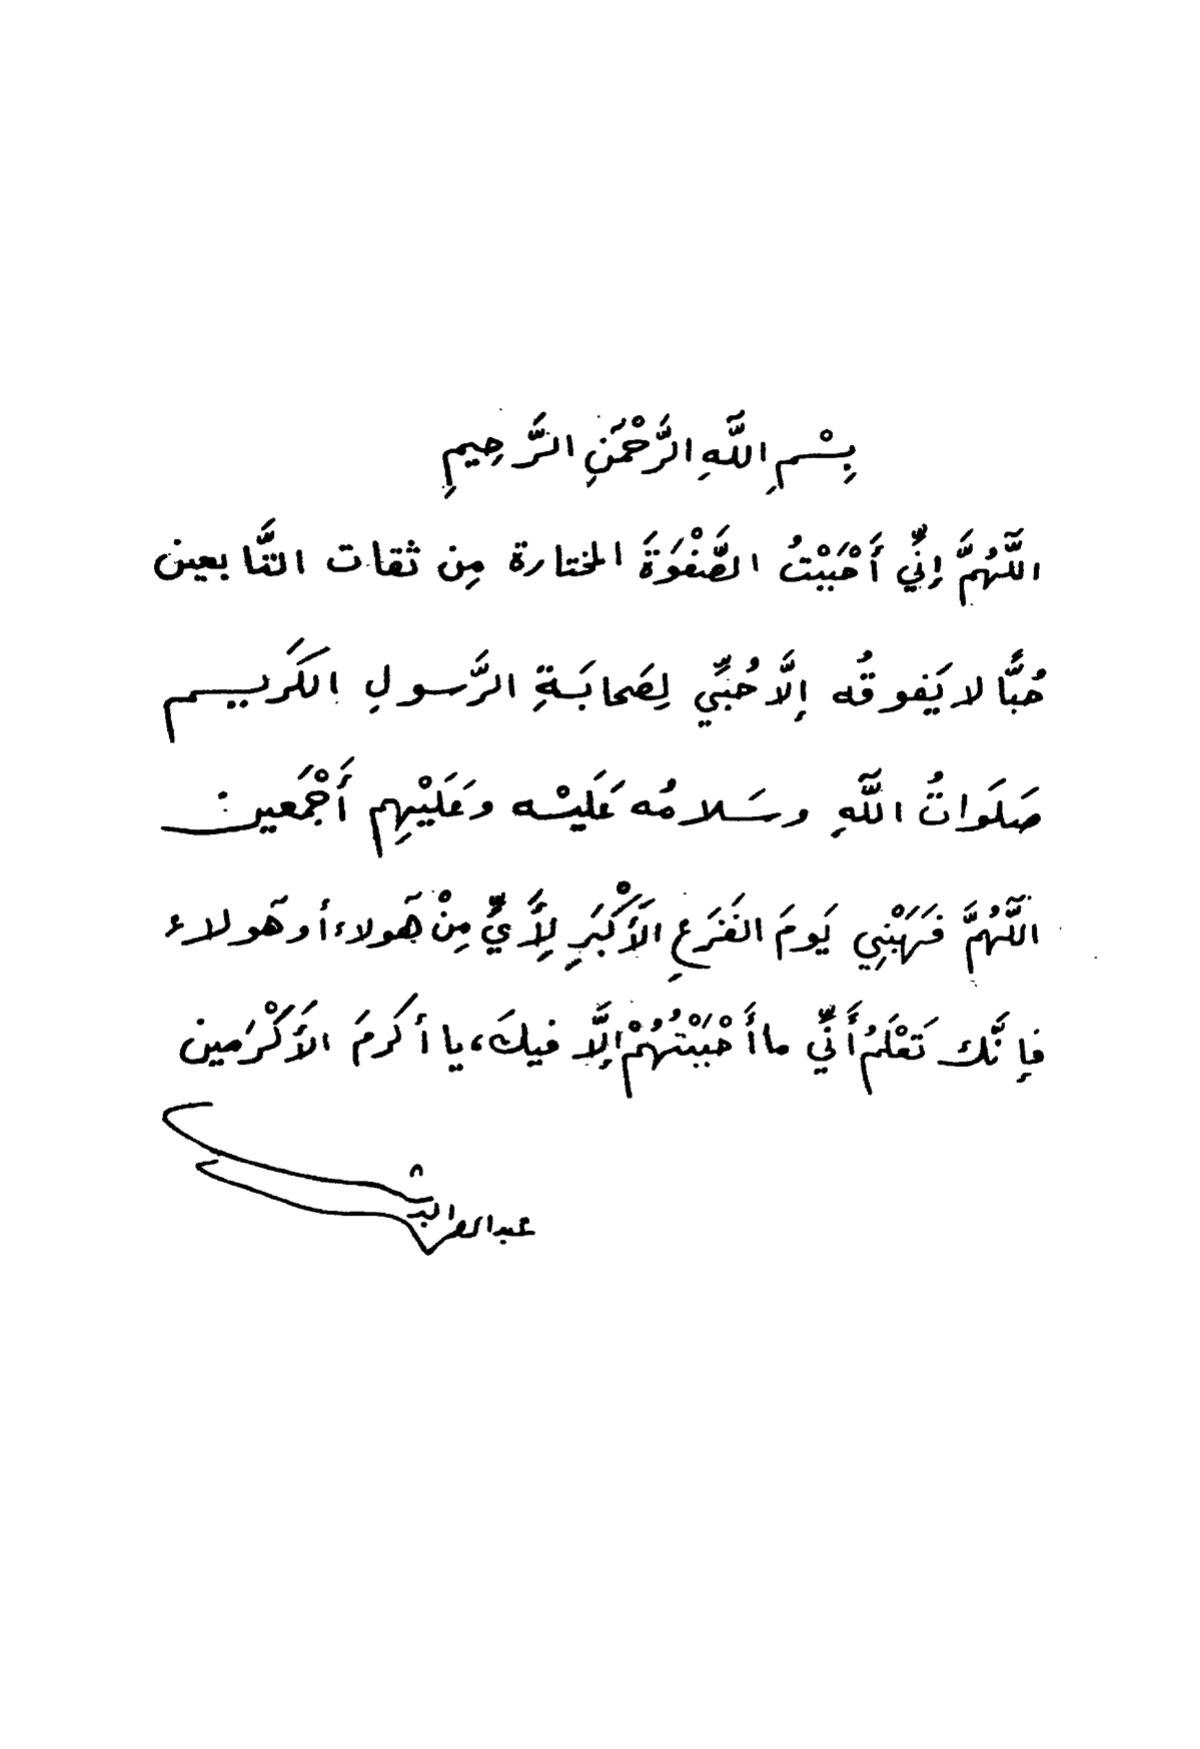 بِسْمِ اللَّهِ الرَّحْمَنِ الرَّحِيمِ
اللَّهُمَّ إِنِّي أَحْبَبْتُ الصَّفْوَةَ المختارة مِن ثقات التَّابعين
حُبًّا لا يَفوقُه إِلَّا حُبِّي لِصَحابَةِ الرَّسولِ الكَريم
صَلَواتُ اللَّهِ وسَلامُه عَلَيْه وعَلَيْهِم أَجْمَعين
اللَّهُمَّ فَهَبْنِي يَومَ الفَزَعِ الأَكْبَرِ لِأَيٍّ مِنْ هَولاء أو هَولاء
فإنَّك تَعْلَمُ أَنِّي ما أَحْبَبْتُهُمْ إلَّا فيكَ، يا أكرمَ الأَكْرَمين